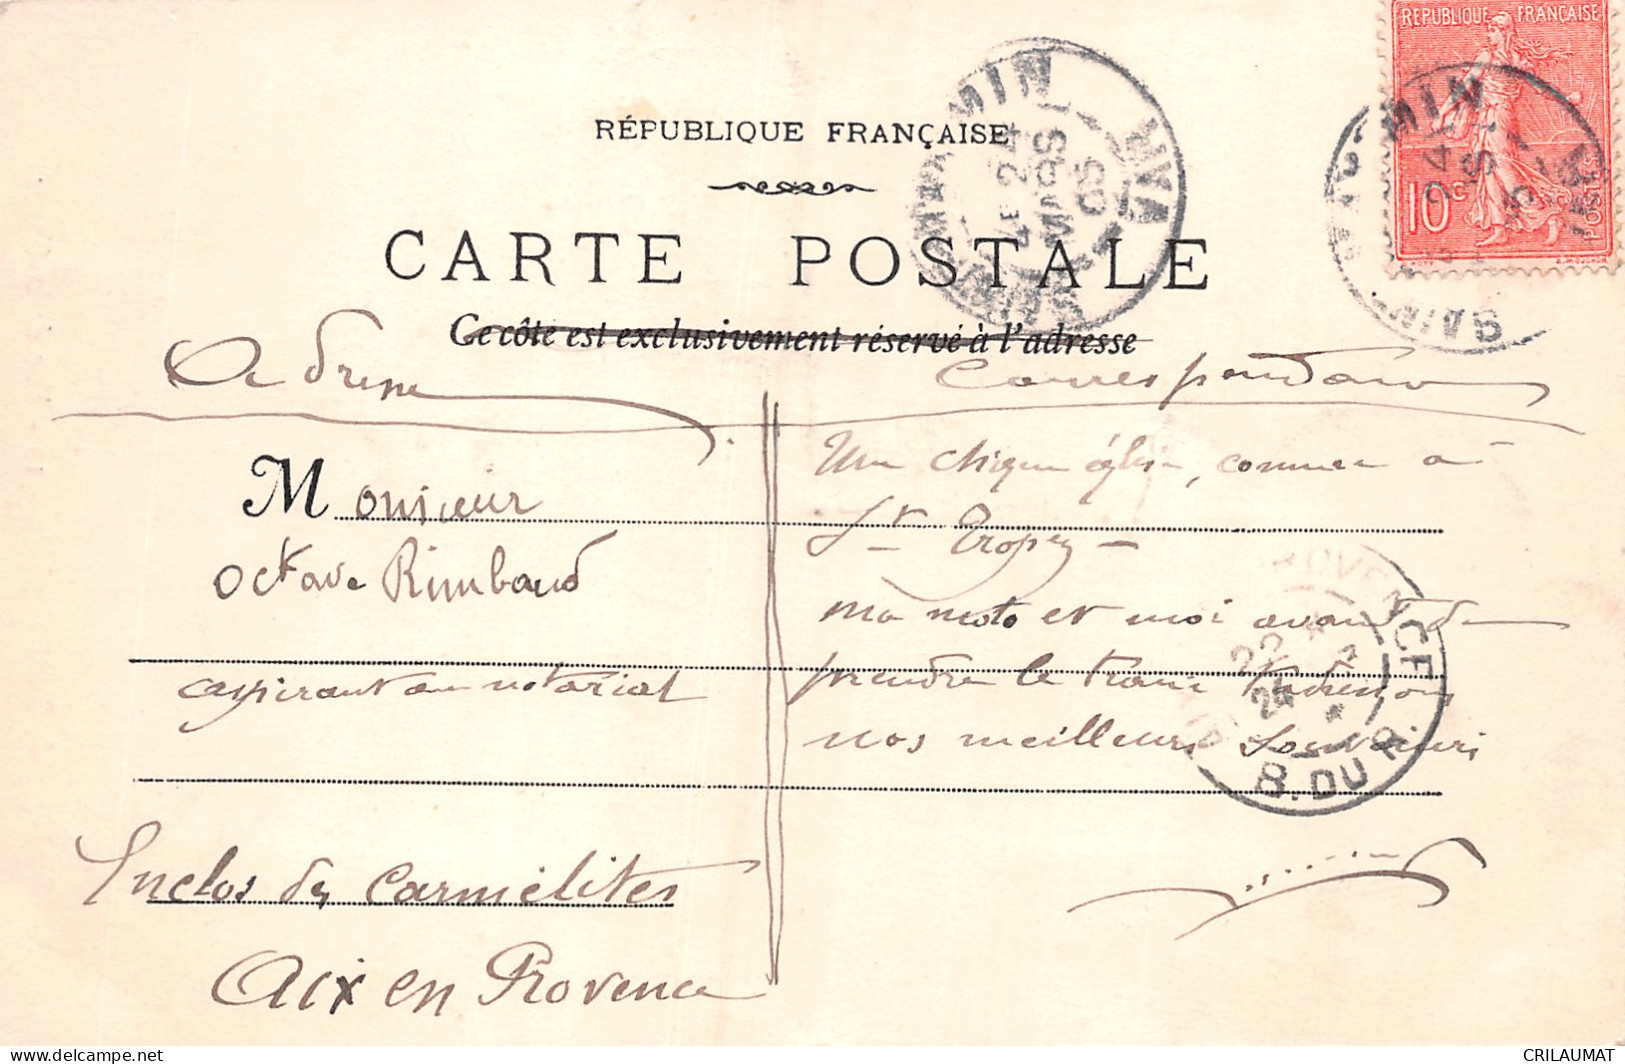 RÉPUBLIQUE FRANÇAISE
CARTE POSTALE
Ce côte est exclusivement réservé à l'adresse
RÉPUBLIQUE FRANÇAISE
10c
POSTES
MIN VAR
4E 24
MARS
05
MIN
24
SAIN
Adresse
Correspondance
Monsieur
Octave Rimbaud
aspirant au notariat
Enclos des Carmélites
Aix en Provence
Une chique église, comme à
St Tropez -
ma moto et moi avant de
prendre le train
nos meilleurs souvenirs
PROVENCE
22
24
B. DU R.
delcampe.net
CRILAUMAT